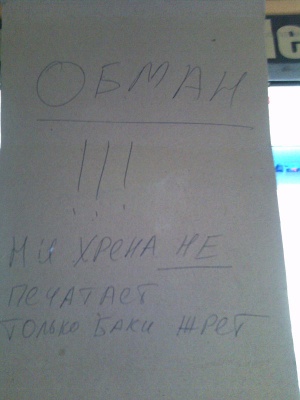 ОБМАН
!!!
НИ ХРЕНА НЕ
ПЕЧАТАЕТ
ТОЛЬКО БАКИ ЖРЕТ